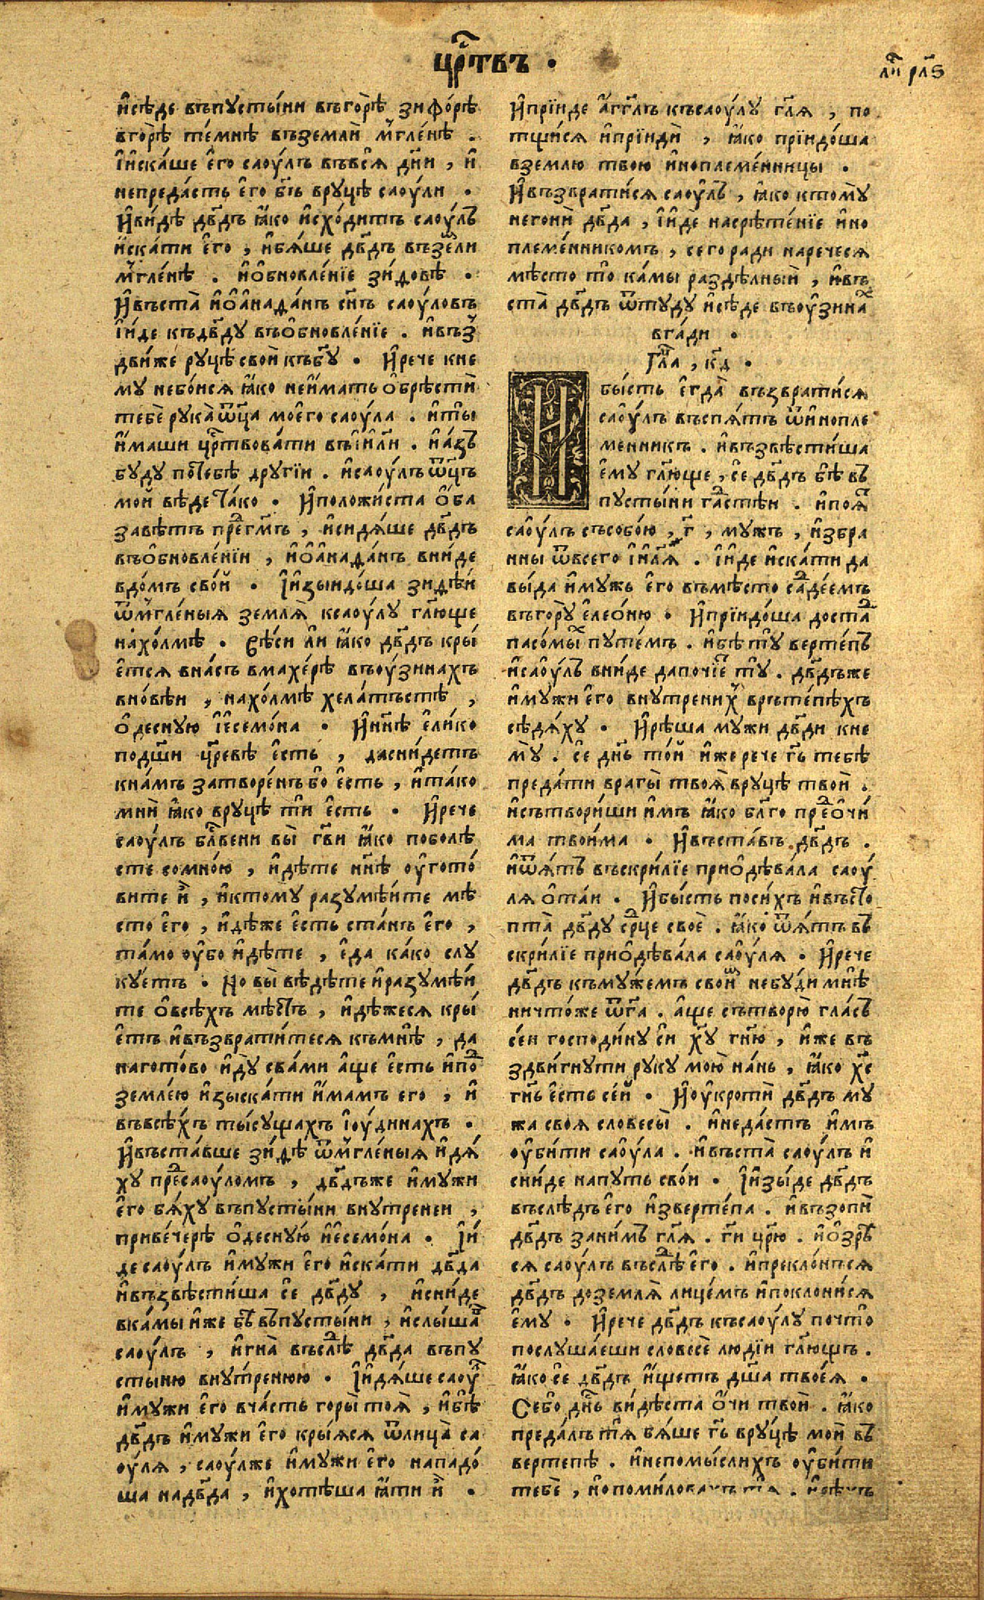 црⷭ҇твъ .
ли́ рл҃ѕ
и҆сѣ́де въпꙋсты́ни въго́рѣ зифо́рѣ
вго́рѣ те́мнѣ въземли̑ мⷢ҇ле́нѣ .
І҆иска́ше є҆го̀ саоу́лъ въвсѧ̑ дн҃и , и҆
непреда́сть є҆го̀ бг҃ъ врꙋцѣ̀ саоу́ли .
И҆ви́дѣ дв҃дъ ꙗ҆́ко и҆схо́дитъ саоу́лъ
и҆ска́ти є҆го̀ , и҆бѧ́ше дв҃дъ възе́мли
мⷢ҇ле́нѣ . и҆ѻ҆бновле́нїе зи́довѣ .
И҆въста̀ и҆ѻ҆анада́нъ сн҃ъ саоу́ловъ
і҆и́де къдв҃дꙋ въѻ҆бновле́нїе . и҆въз
дви́же рꙋцѣ̀ свои̑ къбг҃ꙋ . И҆речѐ кне
мꙋ̀ небо́исѧ ꙗ҆́ко неи҆́мать ѻ҆брѣсти̑
тебѐ рꙋка̀ ѿц҃а мое́го саоу́ла . и҆ты̀
и҆́маши црⷭ҇твовати въі҆и҃ли . и҆а҆́зъ
бꙋ́дꙋ потебѣ̀ дрꙋгі́и . и҆саоу́лъ ѿц҃ъ
мо́и вѣ́де та́ко . И҆положи́ста ѻ҆́ба
завѣ́тъ преⷣгм҃ъ , и҆сидѧ́ше дв҃дъ
въѻ҆бновле́нїи , и҆ѻ҆анада́нъ вни́де
вдо́мъ сво́й . І҆изыидо́ша зидѣ́и
ѿмⷢ҇ле́ныѧ землѧ̀ ксаоу́лꙋ гл҃юще
нахо́лмѣ . Сѣ́си ли ꙗ҆́ко дв҃дъ кры́
є҆тсѧ вна́съ вмахе́рѣ въоу҆зина́хъ
вно́вѣи , нахо́лмѣ хела́тъстѣ ,
ѻ҆деснꙋ́ю і҆є҆семо́на . И҆нн҃ѣ є҆ли́ко
подш҃и цр҃евѣ є҆́сть , даснидетъ
кна́мъ затворе́нъбо є҆́сть , и҆та́ко
мни̑ ꙗ҆́ко врꙋцѣ̀ ти є҆́сть . И҆речѐ
саоу́лъ блⷭ҇вени вы̀ гв҃и ꙗ҆́ко поболѣ́
сте сомно́ю , и҆дѣ́те нн҃ѣ оу҆гото́
вите и҆̀ , и҆ктомꙋ̀ разꙋмѣ́ите мѣ́
сто є҆го̀ , и҆дѣ́же є҆́сть ста́нъ є҆го̀ ,
та́мо оу҆́бо и҆дѣ́те , є҆да̀ ка́ко слꙋ
кꙋ́етъ . Но вы̀ вѣ́дѣте и҆разꙋмѣ́и
те ѻ҆всѣ́хъ мѣ́стъ , и҆дѣ́жесѧ кры́
є҆тъ и҆възврати́тесѧ къмнѣ̀ , да
нагото́во и҆дꙋ̀ сва́ми а҆́ще є҆́сть и҆поⷣ
земле́ю и҆зыска́ти и҆́мамъ его̀ , и҆
въвсѣ́хъ ты́сꙋщахъ і҆оу́динахъ .
И҆въста́вше зи́дѣ ѿмⷢ҇ле́ныѧ и҆дѧ́
хꙋ преⷣсаоу́ломъ , дв҃дъже и҆мꙋ́жи
є҆го̀ бѧ́хꙋ въпꙋсты́ни внꙋ́тренеи ,
приве́черѣ ѻ҆деснꙋ́ю и҆є҆семо́на . І҆и́
де саоу́лъ и҆мꙋ́жи є҆го̀ и҆ска́ти дв҃да
и҆възвѣсти́ша се̑ дв҃дꙋ , и҆сни́де
вка́мы и҆́же бѣ̀ въпꙋсты́ни , и҆слы́шаⷡ
саоу́лъ , и҆гна̀ въслѣⷣ дв҃да въпꙋ
сты́ню внꙋ́тренюю . І҆идѧ́ше саоу́л
и҆мꙋ́жи є҆го̀ вча́сть горы̀ тоѧ̀ , и҆бѣ̀
дв҃дъ и҆мꙋ́жи є҆го̀ кры́ѧсѧ ѿлица̀ са
оу́лѧ , саоу́лже и҆мꙋ́жи є҆го̀ нападо́
ша надв҃да , и҆хотѣ́ша ꙗ҆́ти и҆̀ .
И҆прїи́де а҆́гг҃лъ къса­оу́лꙋ гл҃ѧ , по
тщи́сѧ и҆прїиди̑ , ꙗ҆́ко прїидо́ша
взе́млю твою̀ и҆ноплеме́нницы .
И҆възврати́сѧ саоу́лъ , ꙗ҆́ко ктомꙋ̀
негони̑ дв҃да , і҆и́де насрѣте́нїе и҆но
племе́нникомъ , сего̀ ради нарече́сѧ
мѣ́сто то̀ ка́мы раздѣ́лный , и҆въ
ста̀ дв҃дъ ѿтꙋ́дꙋ и҆сѣ́де въоу҆зинаⷯ
вга́ди .
Гла҃ , к҃д .
И бы́сть є҆гда̀ възврати́сѧ
саоу́лъ въспѧ́тъ ѿи҆нопле
ме́нникъ . и҆възвѣсти́ша
є҆мꙋ̀ гл҃юще , се̑ дв҃дъ бѣ̀ въ
пꙋсты́ни гаⷣстѣи . и҆поѧ́т
саоу́лъ съсобо́ю , г҃ , мꙋ́жъ , и҆збра
нны ѿвсего̀ і҆и҃лѧ . і҆и́де и҆ска́ти да
вы́да и҆мꙋ́жъ є҆го̀ въмѣ́сто саⷣде́емъ
въго́рꙋ є҆лео́ню . И҆прїидо́ша достаⷣ
пасо́мыⷯ пꙋте́мъ . и҆бѣ̀ тꙋ̀ верте́пъ
и҆саоу́лъ вни́де дапочі́ет тꙋ̀ . дв҃дъже
и҆мꙋ́жи є҆го̀ внꙋ́трениⷯ врьте́пѣхъ
сѣдѧ́хꙋ . И҆рѣ́ша мꙋ́жи дв҃ди кне
мꙋ̀ . се̑ дн҃ь то́й и҆́же речѐ гь҃ тебѣ̀
преда́ти враги̑ твоѧ̀ врꙋцѣ̀ твои̑ .
и҆сътвори́ши и҆́мъ ꙗ҆́ко бл҃го преⷣѻ҆чи́
ма твои́ма . И҆въста́въ дв҃дъ .
и҆ѿѧ́тъ въскри́лїе приѻ҆дѣва́ла саоу́
лѧ ѻ҆та́и . И҆бы́сть поси́хъ и҆въсто
пта̀ дв҃дꙋ срⷣце своѐ . ꙗ҆́ко ѿѧ́тъ въ
скри́лїе приѻ҆дѣва́ла саоу́лѧ . И҆речѐ
дв҃дъ къмꙋ́жемъ свои̑м небꙋ́ди мнѣ̀
ничто́же ѿг҃а . а҆́ще сътворю̀ гла́съ
се́и господи́нꙋ си̑ хꙋ҃ гн҃ю , и҆́же въ
здви́гнꙋти рꙋ́кꙋ мою̀ на́нь , ꙗ҆́ко хс҃
гн҃ь є҆́сть се́й . И҆оу҆кроти̑ дв҃дъ мꙋ́
жа своѧ̀ словесы̀ . и҆неда́стъ и҆́мъ
оу҆би́ти саоу́ла . и҆въста̀ саоу́лъ и҆
сни́де напꙋ́ть сво́и . І҆изы́де дв҃дъ
въслѣ́дъ его̀ и҆зверте́па . и҆възопи̑
дв҃дъ зани́мъ гл҃ѧ . ги҃ цр҃ю . и҆ѻ҆зрѣ́
сѧ саоу́лъ въслѣⷣ є҆го̀ . и҆преклони́сѧ
дв҃дъ доземлѧ̀ лице́мъ и҆поклони́сѧ
є҆мꙋ̀ . И҆речѐ дв҃дъ къса­оу́лꙋ почто̀
послꙋша́еши словесѐ люді́и гл҃ющъ .
ꙗ҆́ко се̑ дв҃дъ и҆́щетъ дш҃а твоеѧ̀ .
Себо̀ дн҃ь ви́дѣста ѻ҆́чи твои̑ . ꙗ҆́ко
преда́лъ тѧ̀ бѧ́ше гь҃ врꙋцѣ̀ мои̑ въ
верте́пѣ . и҆непомы́слихъ оу҆би́ти
тебѐ , и҆опоми́ловахъ тѧ̀ . и҆рѣ́хъ